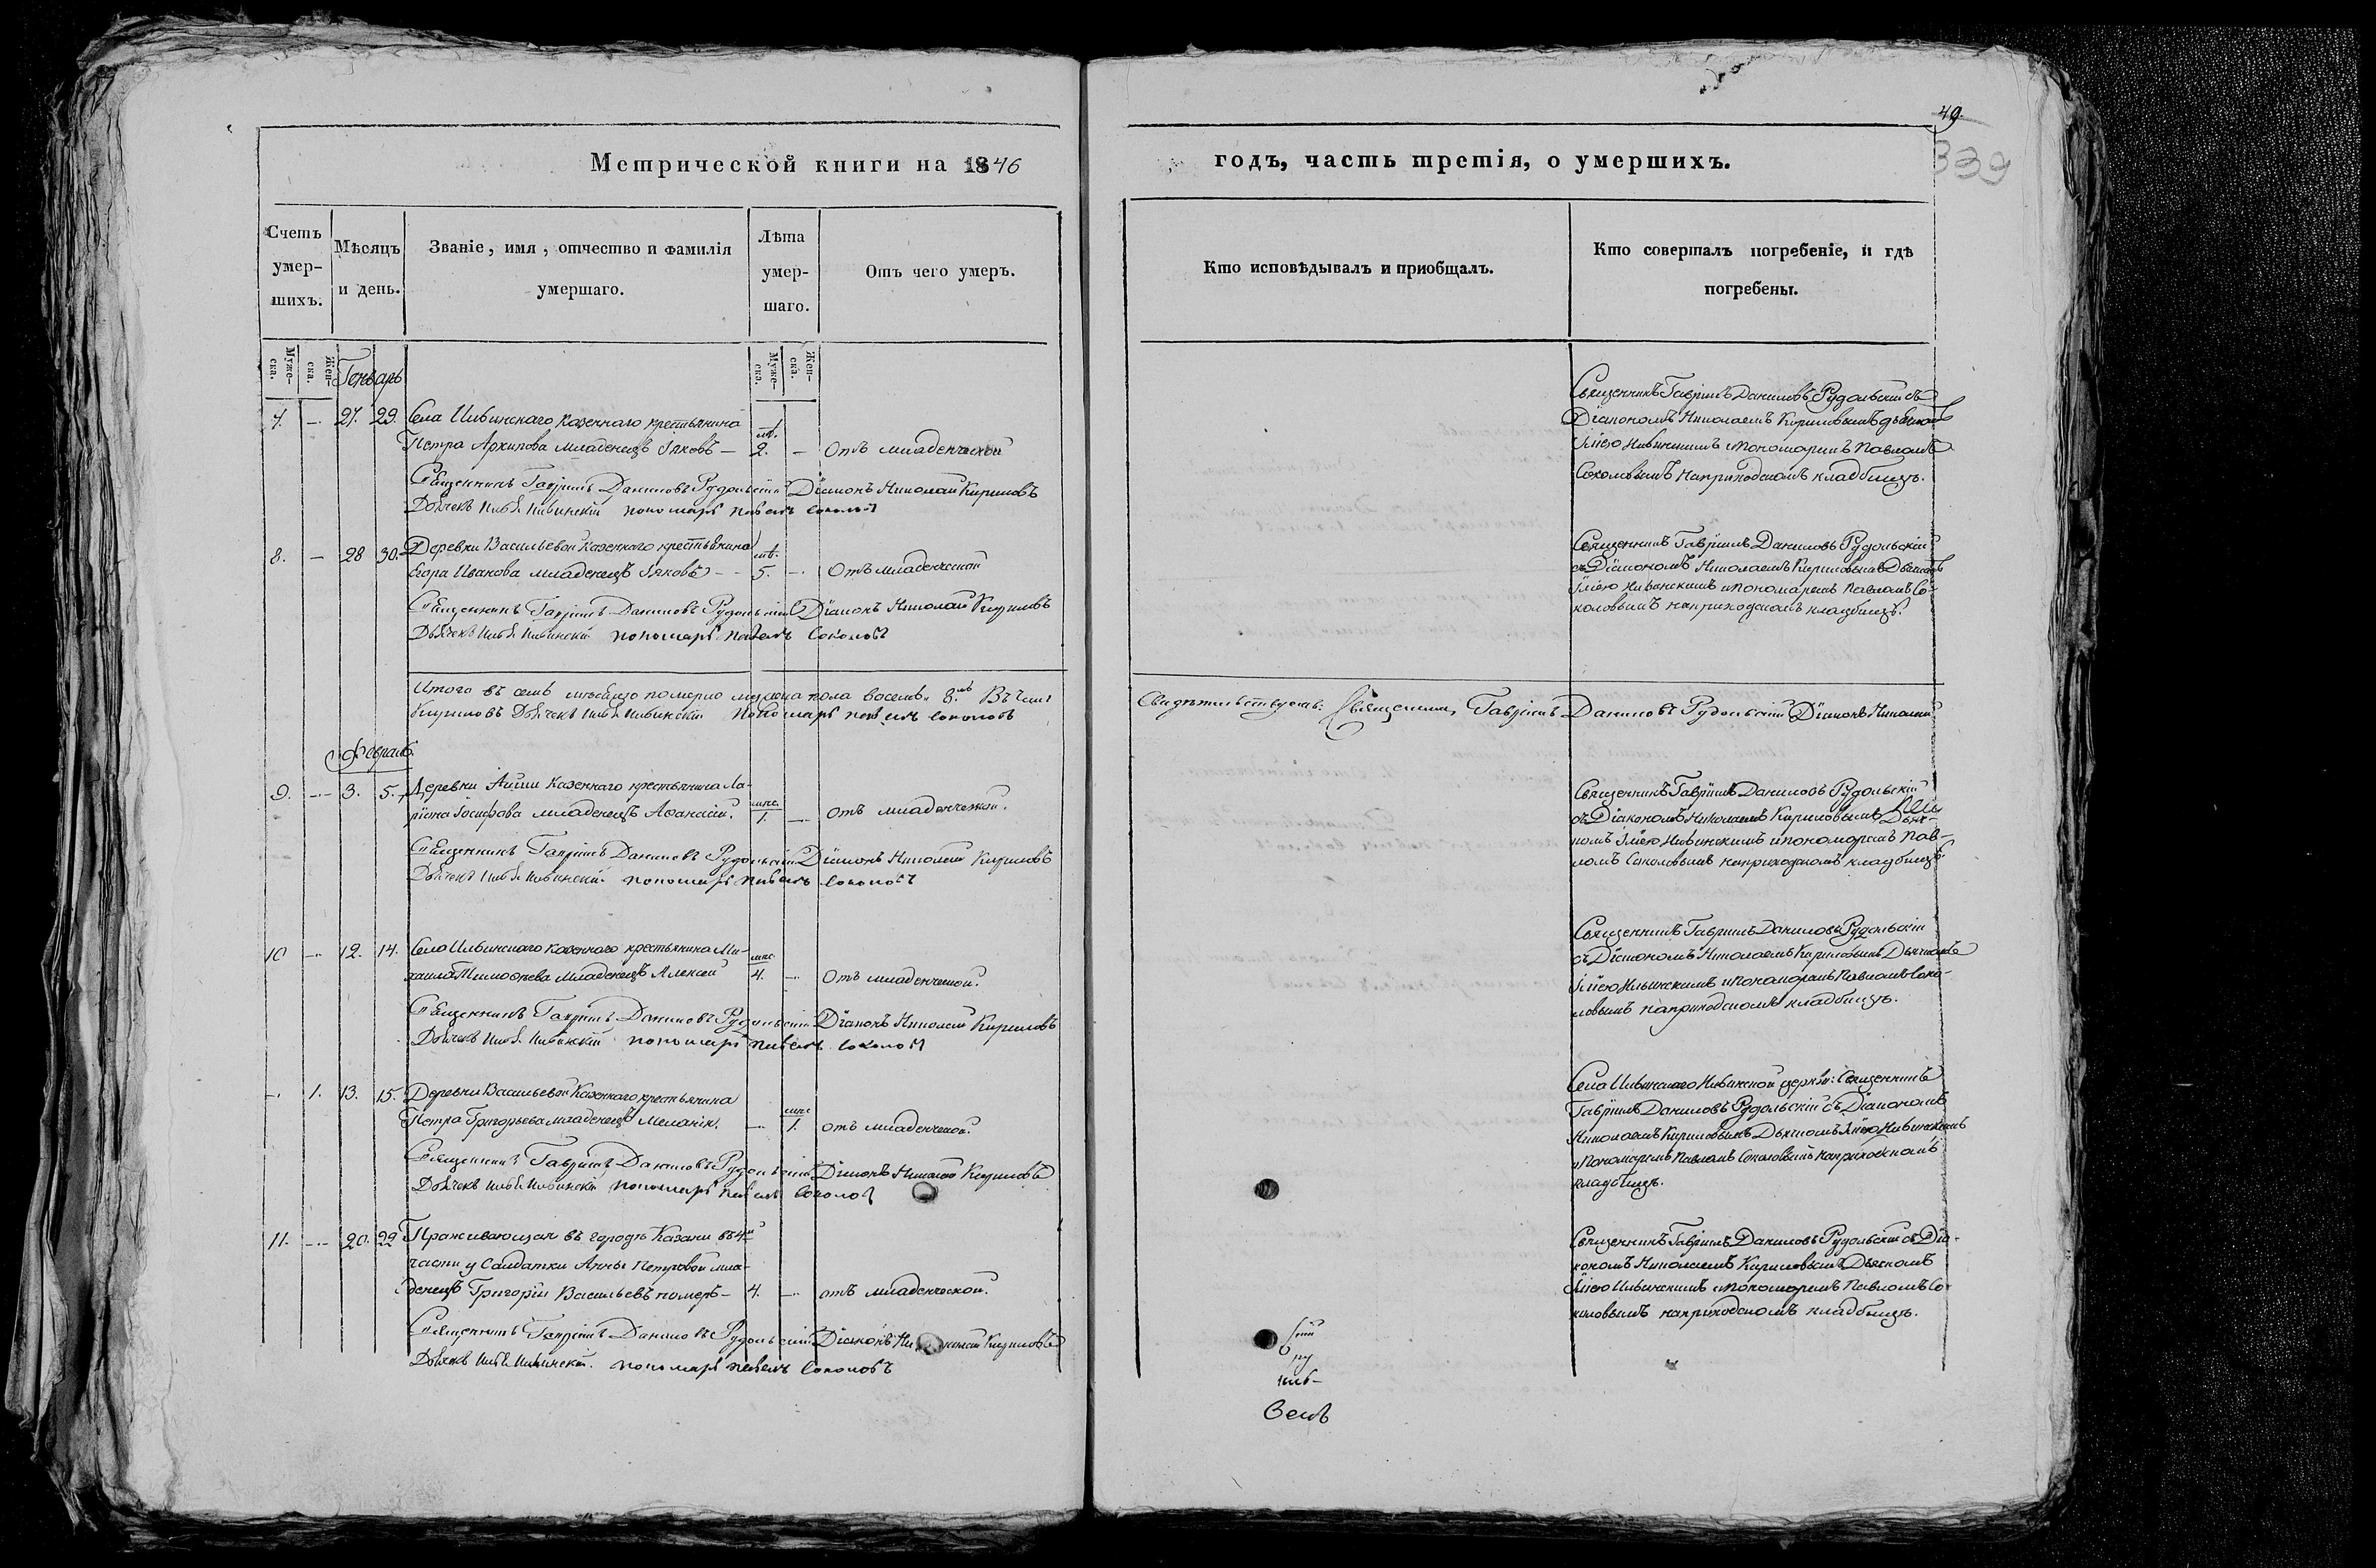 Метрической книги на 1846
Счетъ умер-шихъ.
Мѣсяцъ и день.
Званіе, имя, отчество и фамилія умершаго.
Лѣта умер-шаго.
Отъ чего умеръ.
Муже-ска.
Жен-ска.
Муже-ска.
Жен-ска.
Генварь
7. — 27. 29. Села Ильинскаго казеннаго крестьянина
Петра Архипова младенецъ Іяковъ — 2. — Отъ младенческой
Священникъ Гавріилъ Даниловъ Рудольскій Діаконъ Николай Кириловъ
Дьячекъ Илья Ильинскій пономарь Павелъ Соколовъ
8. — 28 30. Деревни Васильевой казеннаго крестьянина
Егора Иванова младенецъ Іяковъ — 5. — Отъ младенческой
Священникъ Гавріилъ Даниловъ Рудольскій Діаконъ Николай Кириловъ
Дьячекъ Илья Ильинскій пономарь Павелъ Соколовъ
Итого въ семъ мѣсяцѣ померло мужеска пола восемь 8. Въ чемъ
Кириловъ Дьячекъ Илья Ильинскій пономарь Павелъ Соколовъ
Февраль.
9. — 3. 5. Деревни казеннаго крестьянина Ла-
ріона Іосифова младенецъ Афанасій. мпс. 1. — отъ младенческой.
Священникъ Гавріилъ Даниловъ Рудольскій Діаконъ Николай Кириловъ
Дьячекъ Илья Ильинскій пономарь Павелъ Соколовъ
10 — 12. 14. Села Ильинскаго казеннаго крестьянина Ми-
хаила Тимофѣева младенецъ Алексей 4. — Отъ младенческой.
Священникъ Гавріилъ Даниловъ Рудольскій Діаконъ Николай Кириловъ
Дьячекъ Илья Ильинскій пономарь Павелъ Соколовъ
— 1. 13. 15. Деревни Васильевой казеннаго крестьянина
Петра Григорьева младенецъ Меланія. — 1. отъ младенческой.
Священникъ Гавріилъ Даниловъ Рудольскій Діаконъ Николай Кириловъ
Дьячекъ Илья Ильинскій пономарь Павелъ Соколовъ
11. — 20. 22 Проживающая въ городѣ Казани въ 4й
части у Солдатки Анны Петровой мла-
денецъ Григорій Васильевъ померъ — 4. — отъ младенческой.
Священникъ Гавріилъ Даниловъ Рудольскій Діаконъ Николай Кириловъ
Дьячекъ Илья Ильинскій. пономарь Павелъ Соколовъ
49.
339
годъ, часть третія, о умершихъ.
Кто исповѣдывалъ и приобщалъ.
Кто совершалъ погребеніе, и гдѣ погребены.
Священникъ Гавріилъ Даниловъ Рудольскій съ
Діакономъ Николаемъ Кириловымъ дьячкомъ
Ильинскимъ и пономаремъ Павломъ
Соколовымъ на приходскомъ кладбищѣ.
Священникъ Гавріилъ Даниловъ Рудольскій
съ Діакономъ Николаемъ Кириловымъ Дьячкомъ
Ильинскимъ и пономаремъ Павломъ Со-
коловымъ на приходскомъ кладбищѣ.
Свидѣтельствуемъ: Священникъ Гавріилъ Даниловъ Рудольскій Діаконъ Николай
Священникъ Гавріилъ Даниловъ Рудольскій
съ Діакономъ Николаемъ Кириловымъ Дьяч-
комъ Ильинскимъ и пономаремъ Пав-
ломъ Соколовымъ на приходскомъ кладбищѣ
Священникъ Гавріилъ Даниловъ Рудольскій
съ Діакономъ Николаемъ Кириловымъ Дьячкомъ
Ильинскимъ и пономаремъ Павломъ Соко-
ловымъ на приходскомъ кладбищѣ.
Села Ильинскаго Ильинской церкви: Священникъ
Гавріилъ Даниловъ Рудольскій съ Діакономъ
Николаемъ Кириловымъ Дьячкомъ Ильинскимъ
и Пономаремъ Павломъ Соколовымъ на приходскомъ
кладбищѣ.
Священникъ Гавріилъ Даниловъ Рудольскій съ Діа-
кономъ Николаемъ Кириловымъ Дьячкомъ
Ильинскимъ и пономаремъ Павломъ Со-
коловымъ на приходскомъ кладбищѣ.